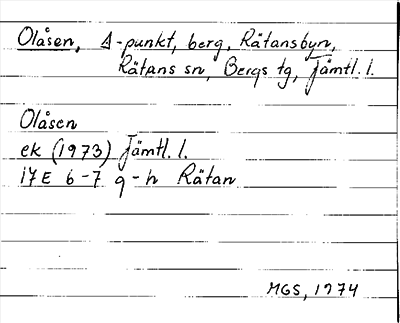 Olåsen, ∆-punkt, berg, Rätansbyn,
Rätans sn, Bergs tg, Jämtl. l.
Olåsen
ek (1973) Jämtl. l.
17E 6-7 g-h Rätan
MGS, 1974